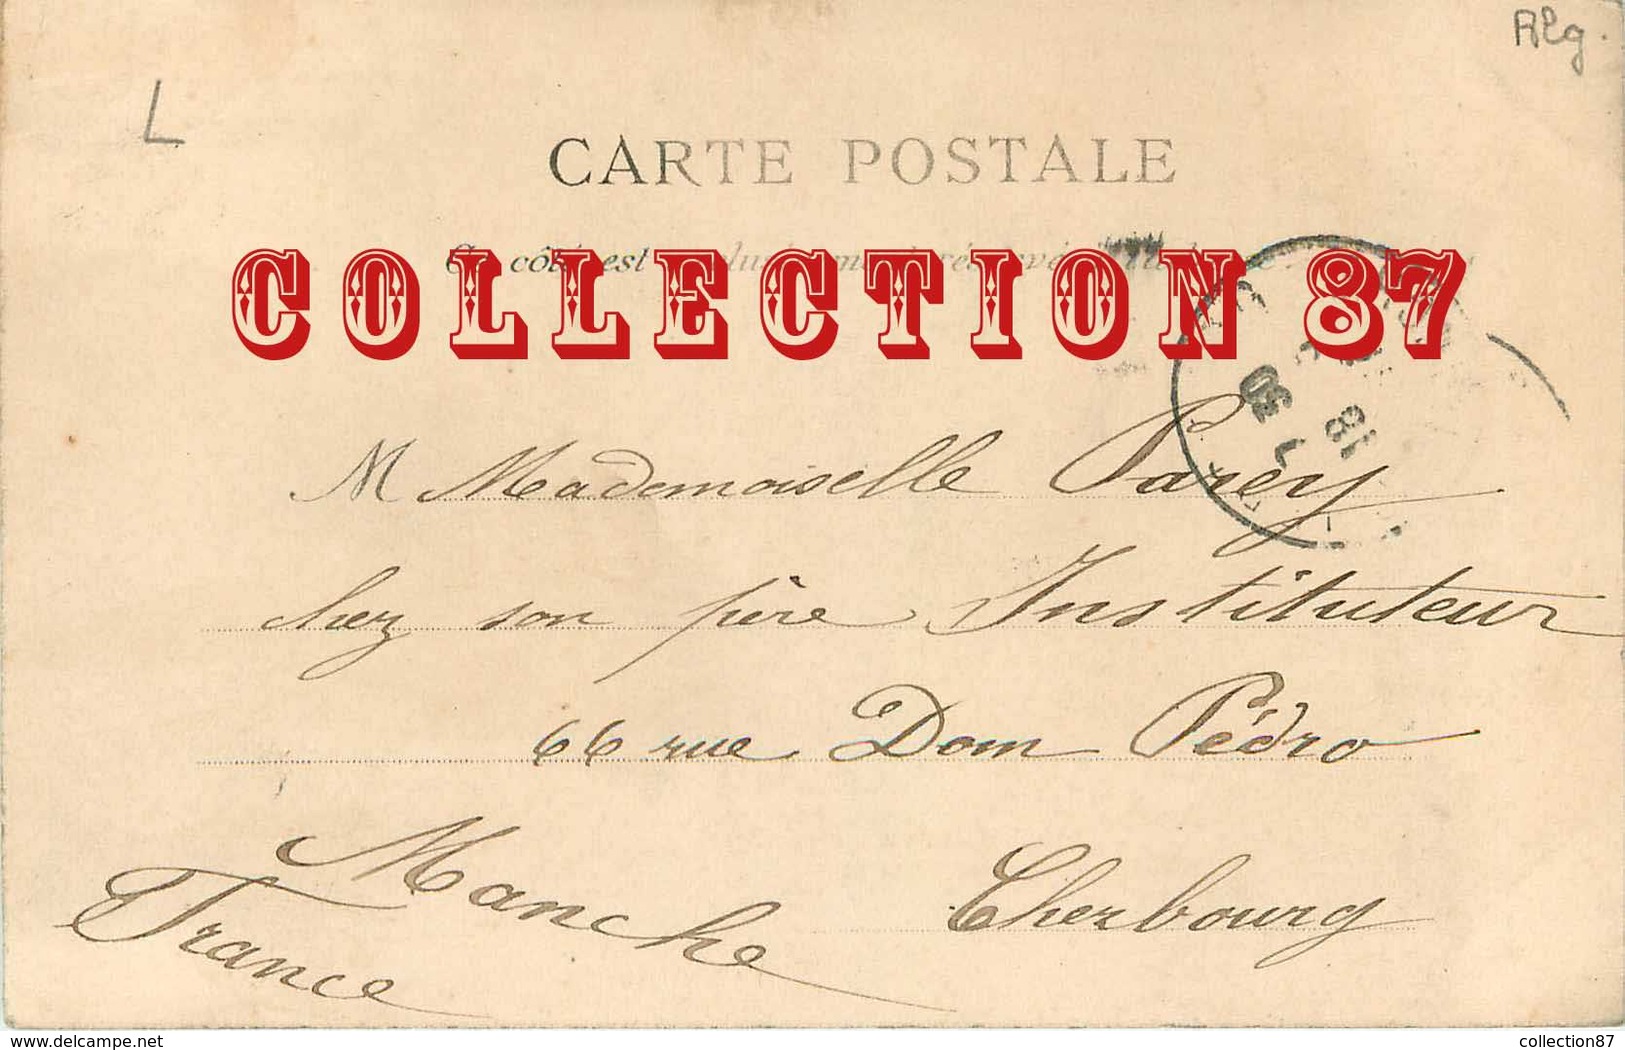 Alg.
L
CARTE POSTALE
Ce côté est
COLLECTION 87
18
M Mademoiselle Parey
chez son père Instituteur
66 rue Dom Pédro
Manche Cherbourg
France
delcampe.net
collection87